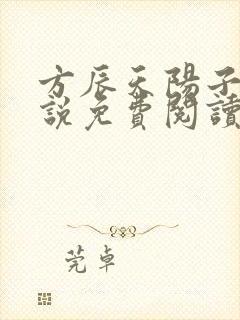 方辰天陽子
說免費閱讀
莞卓